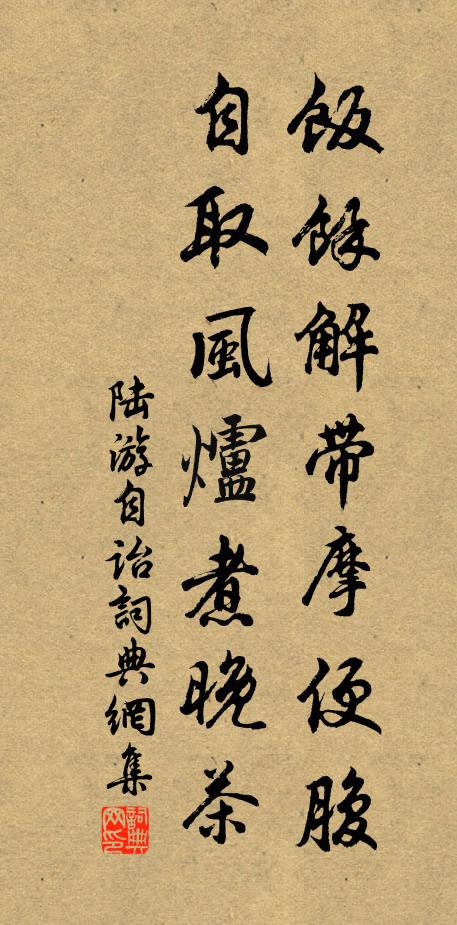 飯餘解帶摩便腹
自取風爐煮晚茶
陆游自詒詞典網集
詞典网印